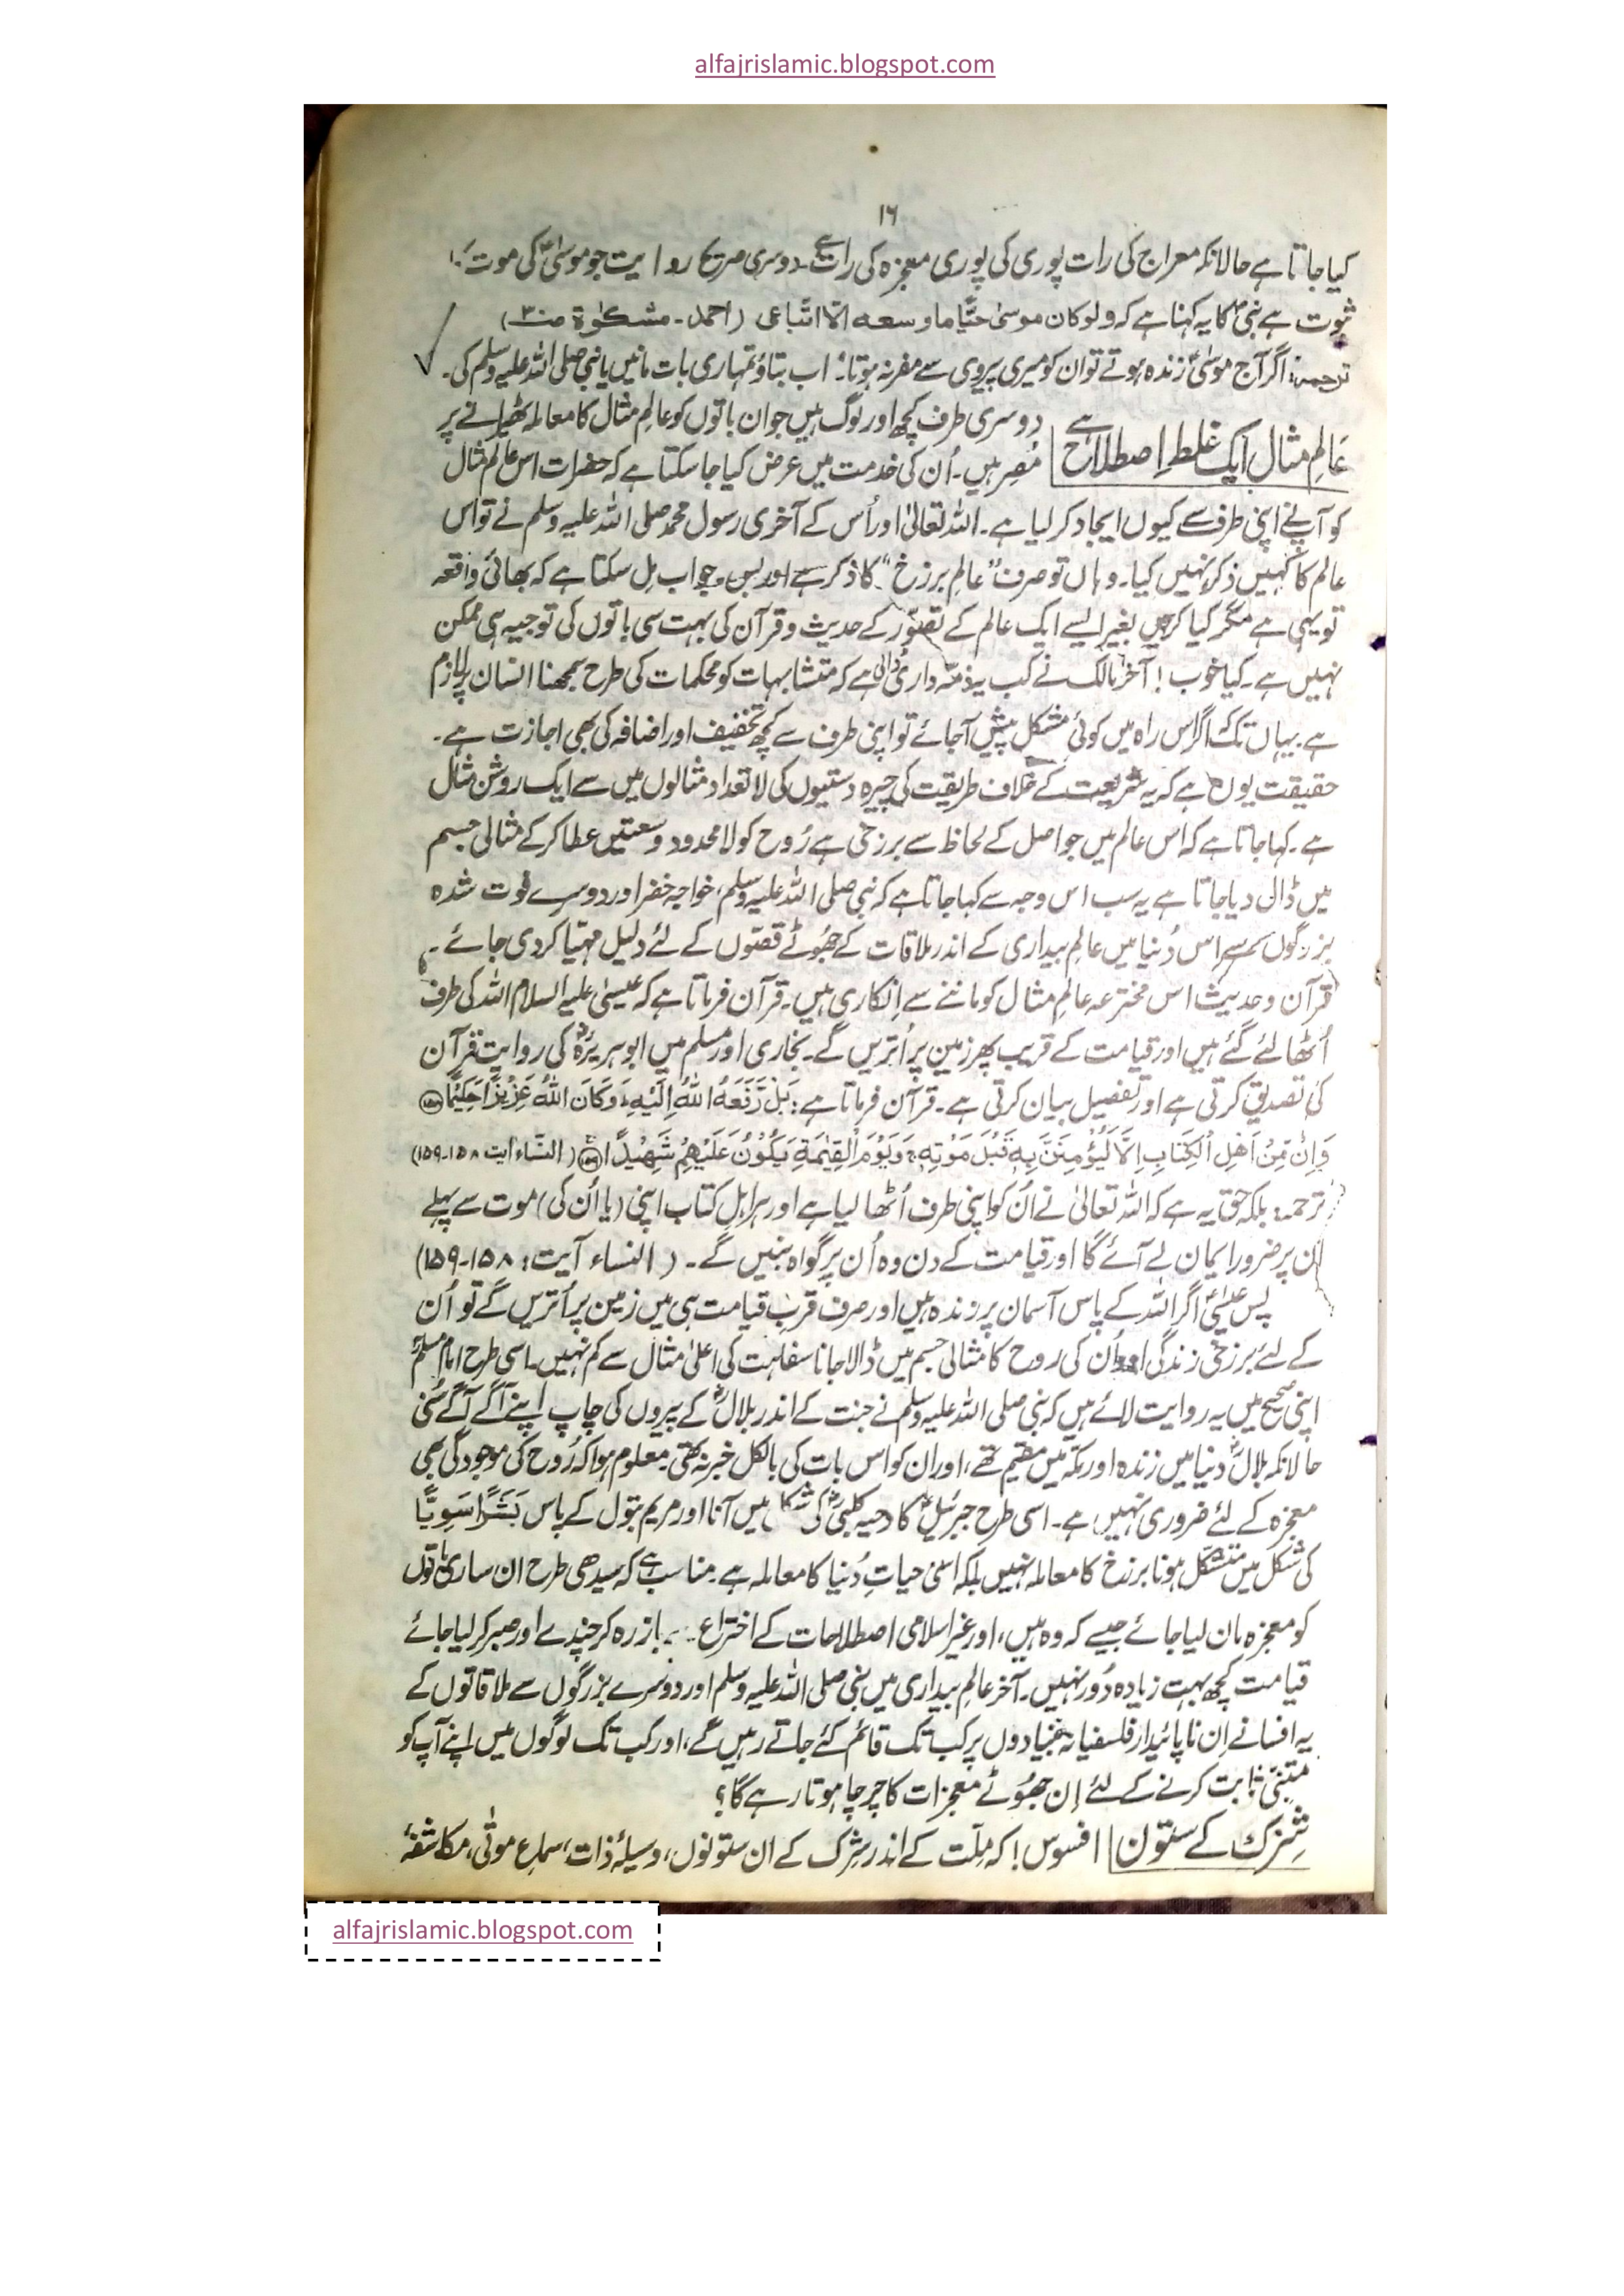 alfajrislamic.blogspot.com
۱۶
کیا جاتا ہے حالانکہ معراج کی رات پوری کی پوری معجزہ کی رات ہے۔ دوسری صریح روایت جو موسیٰؑ کی موت کا
ثبوت ہے نبیؐ کا یہ کہنا ہے کہ ولو کان موسیٰ حیًّا ما وسعہ الّا اتّباعی (احمد۔ مشکوٰۃ صـ۳۰)
ترجمہ: اگر آج موسیٰؑ زندہ ہوتے تو ان کو میری پیروی سے مفر نہ ہوتا۔ اب بتاؤ تمہاری بات مانیں یا نبی صلی اللہ علیہ وسلم کی۔
عالمِ مثال ایک غلط اصطلاح ہے
دوسری طرف کچھ اور لوگ ہیں جو ان باتوں کو عالمِ مثال کا معاملہ ٹھیرانے پر
مُصِر ہیں۔ اُن کی خدمت میں عرض کیا جا سکتا ہے کہ حضرات اس عالمِ مثال
کو آپ نے اپنی طرف سے کیوں ایجاد کر لیا ہے۔ اللہ تعالیٰ اور اُس کے آخری رسول محمد صلی اللہ علیہ وسلم نے تو اس
عالم کا کہیں ذکر نہیں کیا۔ وہاں تو صرف "عالمِ برزخ" کا ذکر ہے اور بس۔ جواب مِل سکتا ہے کہ بھائی واقعہ
تو یہی ہے مگر کیا کریں بغیر ایسے ایک عالم کے تصوّر کے حدیث و قرآن کی بہت سی باتوں کی توجیہ ہی ممکن
نہیں ہے۔ کیا خوب! آخر مالک نے کب یہ ذمّہ داری ڈالی ہے کہ متشابہات کو محکمات کی طرح سمجھنا انسان پر لازم
ہے۔ یہاں تک کہ اگر اس راہ میں کوئی مشکل پیش آجائے تو اپنی طرف سے کچھ تخفیف اور اضافہ کی بھی اجازت ہے۔
حقیقت یوں ہے کہ یہ شریعت کے خلاف طریقت کی چیرہ دستیوں کی لاتعداد مثالوں میں سے ایک روشن مثال
ہے۔ کہا جاتا ہے کہ اس عالم میں جو اصل کے لحاظ سے برزخی ہے رُوح کو لامحدود وسعتیں عطا کرکے مثالی جسم
میں ڈال دیا جاتا ہے یہ سب اس وجہ سے کہا جاتا ہے کہ نبی صلی اللہ علیہ وسلم، خواجہ خضر اور دوسرے فوت شدہ
بزرگوں سے اس دُنیا میں عالمِ بیداری کے اندر ملاقات کے جھوُٹے قصّوں کے لئے دلیل مہیّا کر دی جائے۔
قرآن و حدیث اس مخترعہ عالمِ مثال کو ماننے سے اِنکاری ہیں۔ قرآن فرماتا ہے کہ عیسیٰ علیہ السلام اللہ کی طرف
اُٹھا لئے گئے ہیں اور قیامت کے قریب پھر زمین پر اُتریں گے۔ بخاری اور مسلم میں ابوہریرہؓ کی روایت قرآن
کی تصدیق کرتی ہے اور تفصیل بیان کرتی ہے۔ قرآن فرماتا ہے: بَلْ رَّفَعَهُ اللّٰهُ اِلَيْهِ ؕ وَكَانَ اللّٰهُ عَزِيْزًا حَكِيْمًا ﴿۱۵۸﴾
وَاِنْ مِّنْ اَهْلِ الْكِتَابِ اِلَّا لَيُؤْمِنَنَّ بِهٖ قَبْلَ مَوْتِهٖ ۚ وَيَوْمَ الْقِيٰمَةِ يَكُوْنُ عَلَيْهِمْ شَهِيْدًا ﴿۱۵۹﴾ (النّساء آیت ۱۵۸-۱۵۹)
ترجمہ: بلکہ حق یہ ہے کہ اللہ تعالیٰ نے اُن کو اپنی طرف اُٹھا لیا ہے اور ہر اہلِ کتاب اپنی (یا اُن کی) موت سے پہلے
اُن پر ضرور ایمان لے آئے گا اور قیامت کے دن وہ اُن پر گواہ بنیں گے۔ (النساء آیت: ۱۵۸-۱۵۹)
پس عیسیٰؑ اگر اللہ کے پاس آسمان پر زندہ ہیں اور صرف قربِ قیامت ہی میں زمین پر اُتریں گے تو اُن
کے لئے برزخی زندگی اور اُن کی روح کا مثالی جسم میں ڈالا جانا سفاہت کی اعلیٰ مثال سے کم نہیں۔ اسی طرح امام مسلمؒ
اپنی صحیح میں یہ روایت لائے ہیں کہ نبی صلی اللہ علیہ وسلم نے جنت کے اندر بلالؓ کے پیروں کی چاپ اپنے آگے آگے سُنی
حالانکہ بلالؓ دنیا میں زندہ اور مکّہ میں مقیم تھے، اور ان کو اس بات کی بالکل خبر نہ تھی۔ معلوم ہوا کہ رُوح کی موجودگی بھی
معجزہ کے لئے ضروری نہیں ہے۔ اسی طرح جبرئیلؑ کا دحیہ کلبیؓ کی شکل میں آنا اور مریم بتول کے پاس بَشَرًا سَوِيًّا
کی شکل میں متشکّل ہونا برزخ کا معاملہ نہیں بلکہ اسی حیاتِ دُنیا کا معاملہ ہے۔ مناسب ہے کہ سیدھی طرح ان ساری باتوں
کو معجزہ مان لیا جائے جیسے کہ وہ ہیں، اور غیر اسلامی اصطلاحات کے اختراع سے باز رہ کر چندے اور صبر کر لیا جائے
قیامت کچھ بہت زیادہ دُور نہیں۔ آخر عالمِ بیداری میں نبی صلی اللہ علیہ وسلم اور دوسرے بزرگوں سے ملاقاتوں کے
یہ افسانے اِن ناپائیدار فلسفیانہ بنیادوں پر کب تک قائم کئے جاتے رہیں گے، اور کب تک لوگوں میں اپنے آپ کو
متبنّیٰ ثابت کرنے کے لئے اِن جھوُٹے معجزات کا چرچا ہوتا رہے گا؟
شِرک کے ستون
افسوس! کہ مِلّت کے اندر شِرک کے ان ستونوں، وسیلۂ ذات، سماعِ موتٰی، مکاشفۂ
alfajrislamic.blogspot.com